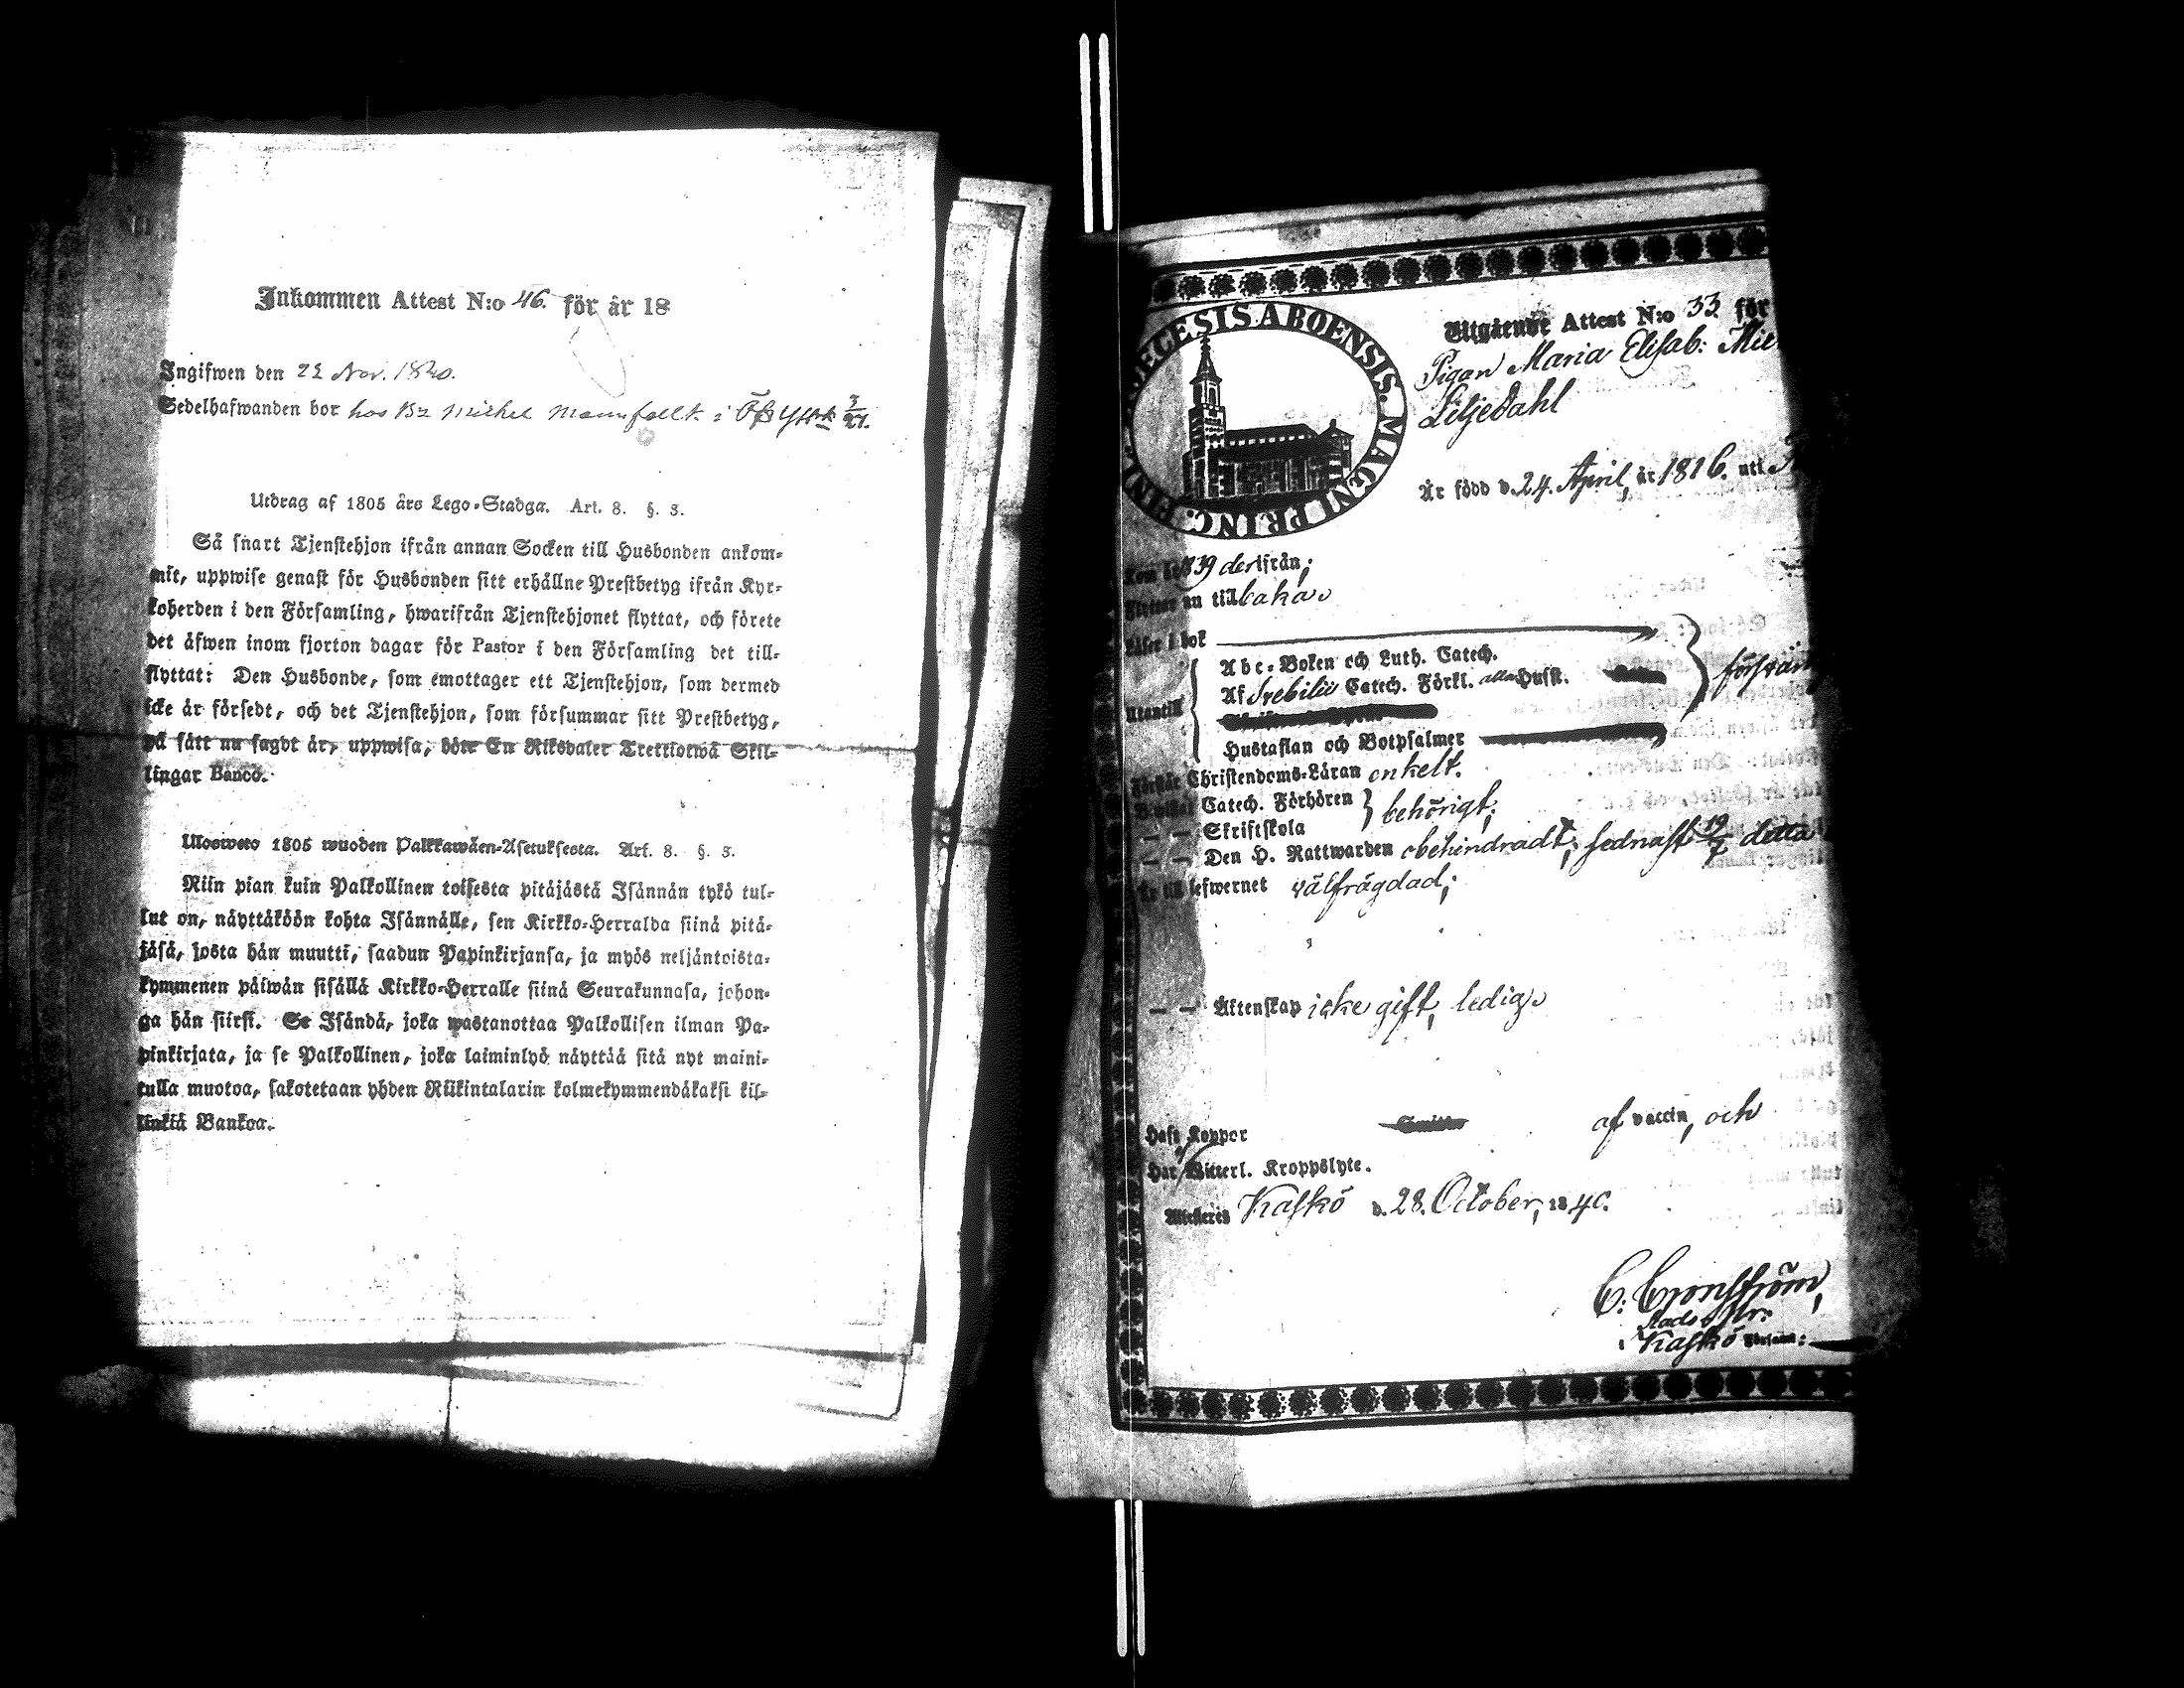 Inkommen Attest N:o 46. för år 18
Ingifwen den 22 Nov. 1840.
Sedelhafwanden bor hos Bz Michel Mannfallk i
Utdrag af 1805 års Lego-Stadga. Art. 8. §. 3.
Så snart Tjenstehjon ifrån annan Socken till Husbonden ankom-
mit, uppwise genast för Husbonden sitt erhållne Prestbetyg ifrån Kyr-
koherden i den Församling, hwarifrån Tjenstehjonet flyttat, och förete
det äfwen inom fjorton dagar för Pastor i den Församling det till-
flyttat: Den Husbonde, som emottager ett Tjenstehjon, som dermed
icke är försedt, och det Tjenstehjon, som försummar sitt Prestbetyg,
på sätt nu sagdt är, uppwisa, böte En Riksdaler Trettiotwå Skil-
lingar Banco.
Ulosweto 1805 wuoden Palkkawäen-Asetuksesta. Art. 8. §. 3.
Niin pian kuin Palkollinen toisesta pitäjästä Isännän tykö tul-
lut on, näyttäköön kohta Isännälle, sen Kirkko-Herralda siinä pitä-
jäsä, josta hän muutti, saadun Papinkirjansa, ja myös neljäntoista-
kymmenen päiwän sisällä Kirkko-Herralle siinä Seurakunnasa, johon-
ga hän siirsi. Se Isändä, joka wastanottaa Palkollisen ilman Pa-
pinkirjata, ja se Palkollinen, joka laiminlyö näyttää sitä nyt maini-
tulla muotoa, sakotetaan yhden Riikintalarin kolmekymmendäkaksi kil-
linkiä Bankoa.
DIOECESIS ABOENSIS. MAGNI PRINC. FINL.
Utgående Attest N:o 33 för
Pigan Maria Elisab:
Liljedahl
Är född d. 24. April, år 1816. uti
Kom år 1839 derifrån;
Flyttar nu tillbaka.
Läser i bok
Abc-Boken och Luth. Catech.
Af Svebilii Catech. Förkl. Hussl.
Utantill
Hustaflan och Botpsalmer
Förstår Christendoms-Läran enkelt.
Bewistat Catech. Förhören behörigt;
— — Skriftskola
— — Den H. Nattwarden obehindradt; sednast 19/7 detta
Är till lefwernet välfrägdad;
— — Äktenskap icke gift, ledig.
Haft Koppor af vaccin, och
Har Witterl. Kroppslyte.
Attesteras Kaskö d. 28. October, 1840.
C: Cronström,
Kaskö Församl: